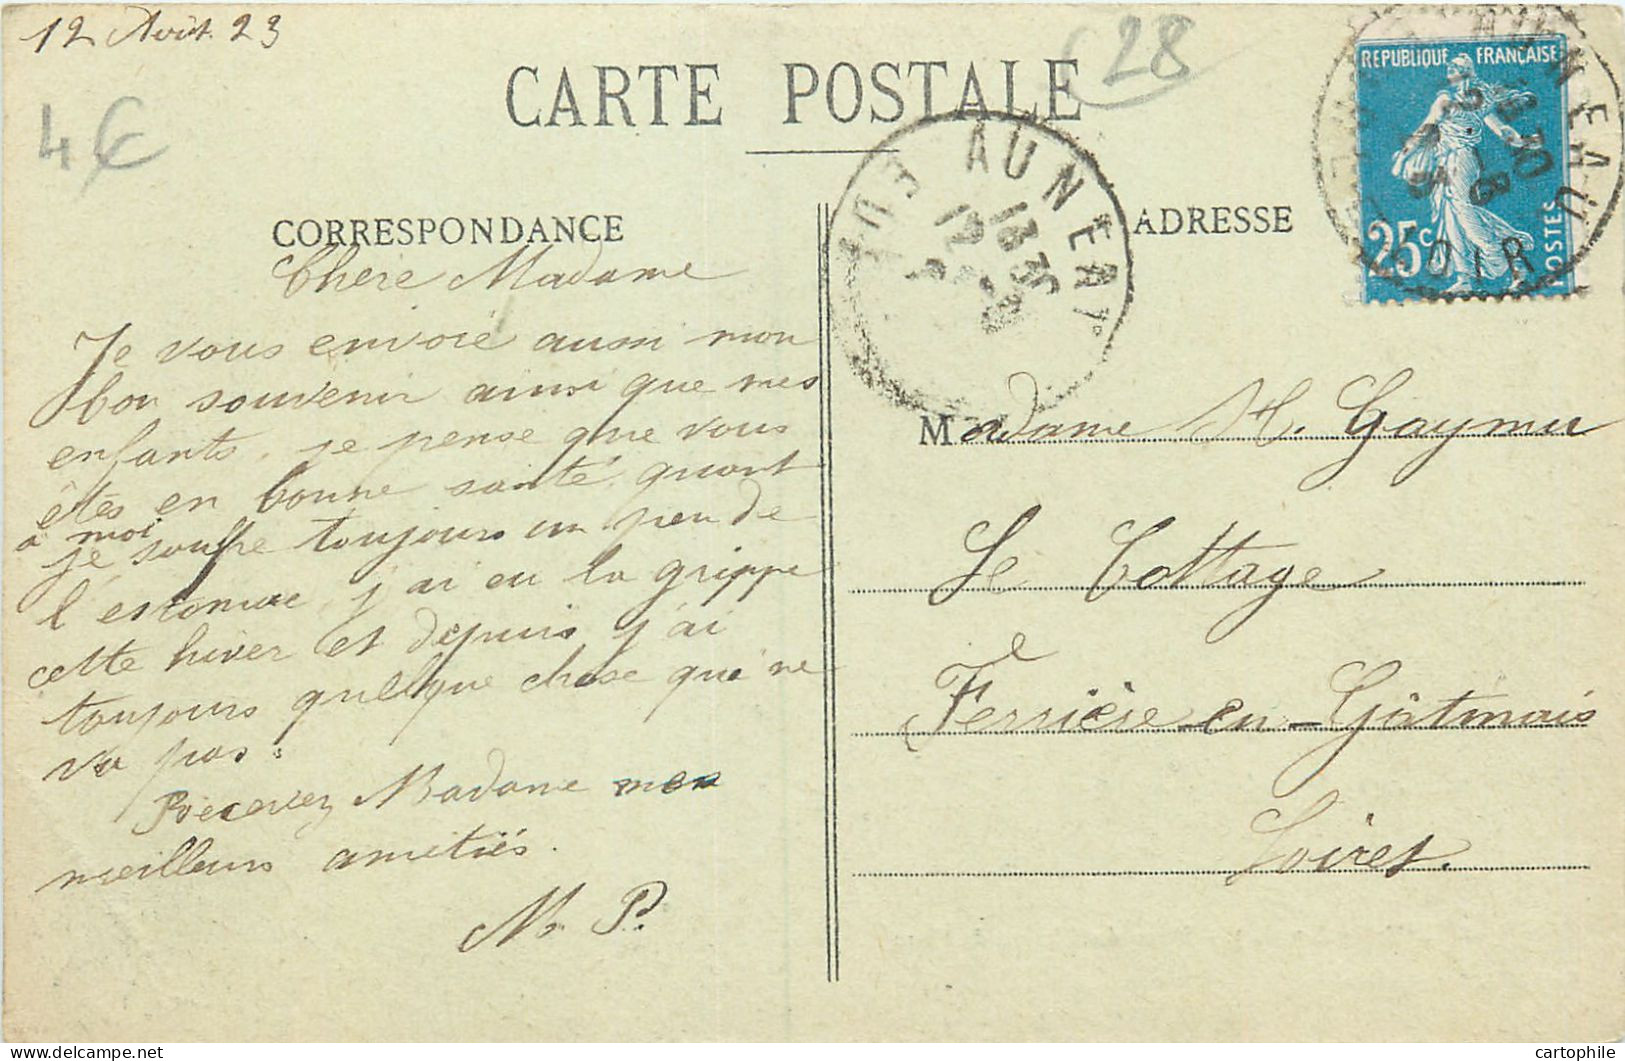 12 Août 23
28
4€
CARTE POSTALE
REPUBLIQUE FRANÇAISE
25c
POSTES
AUNEAU
13 30
12 - 8
AUNEAU
EURE
CORRESPONDANCE
ADRESSE
Chère Madame
Je vous envoie aussi mon
bon souvenir ainsi que mes
enfants. je pense que vous
êtes en bonne santé. quant
à moi
je souffre toujours un peu de
l'estomac, j'ai eu la grippe
cette hiver et depuis j'ai
toujours quelque chose qui ne
va pas.
Recevez Madame mes
meilleurs amitiés.
M. P.
Madame H. Gaymu
Le Cottage
Ferrière-en-Gâtinais
Loiret.
cartophile